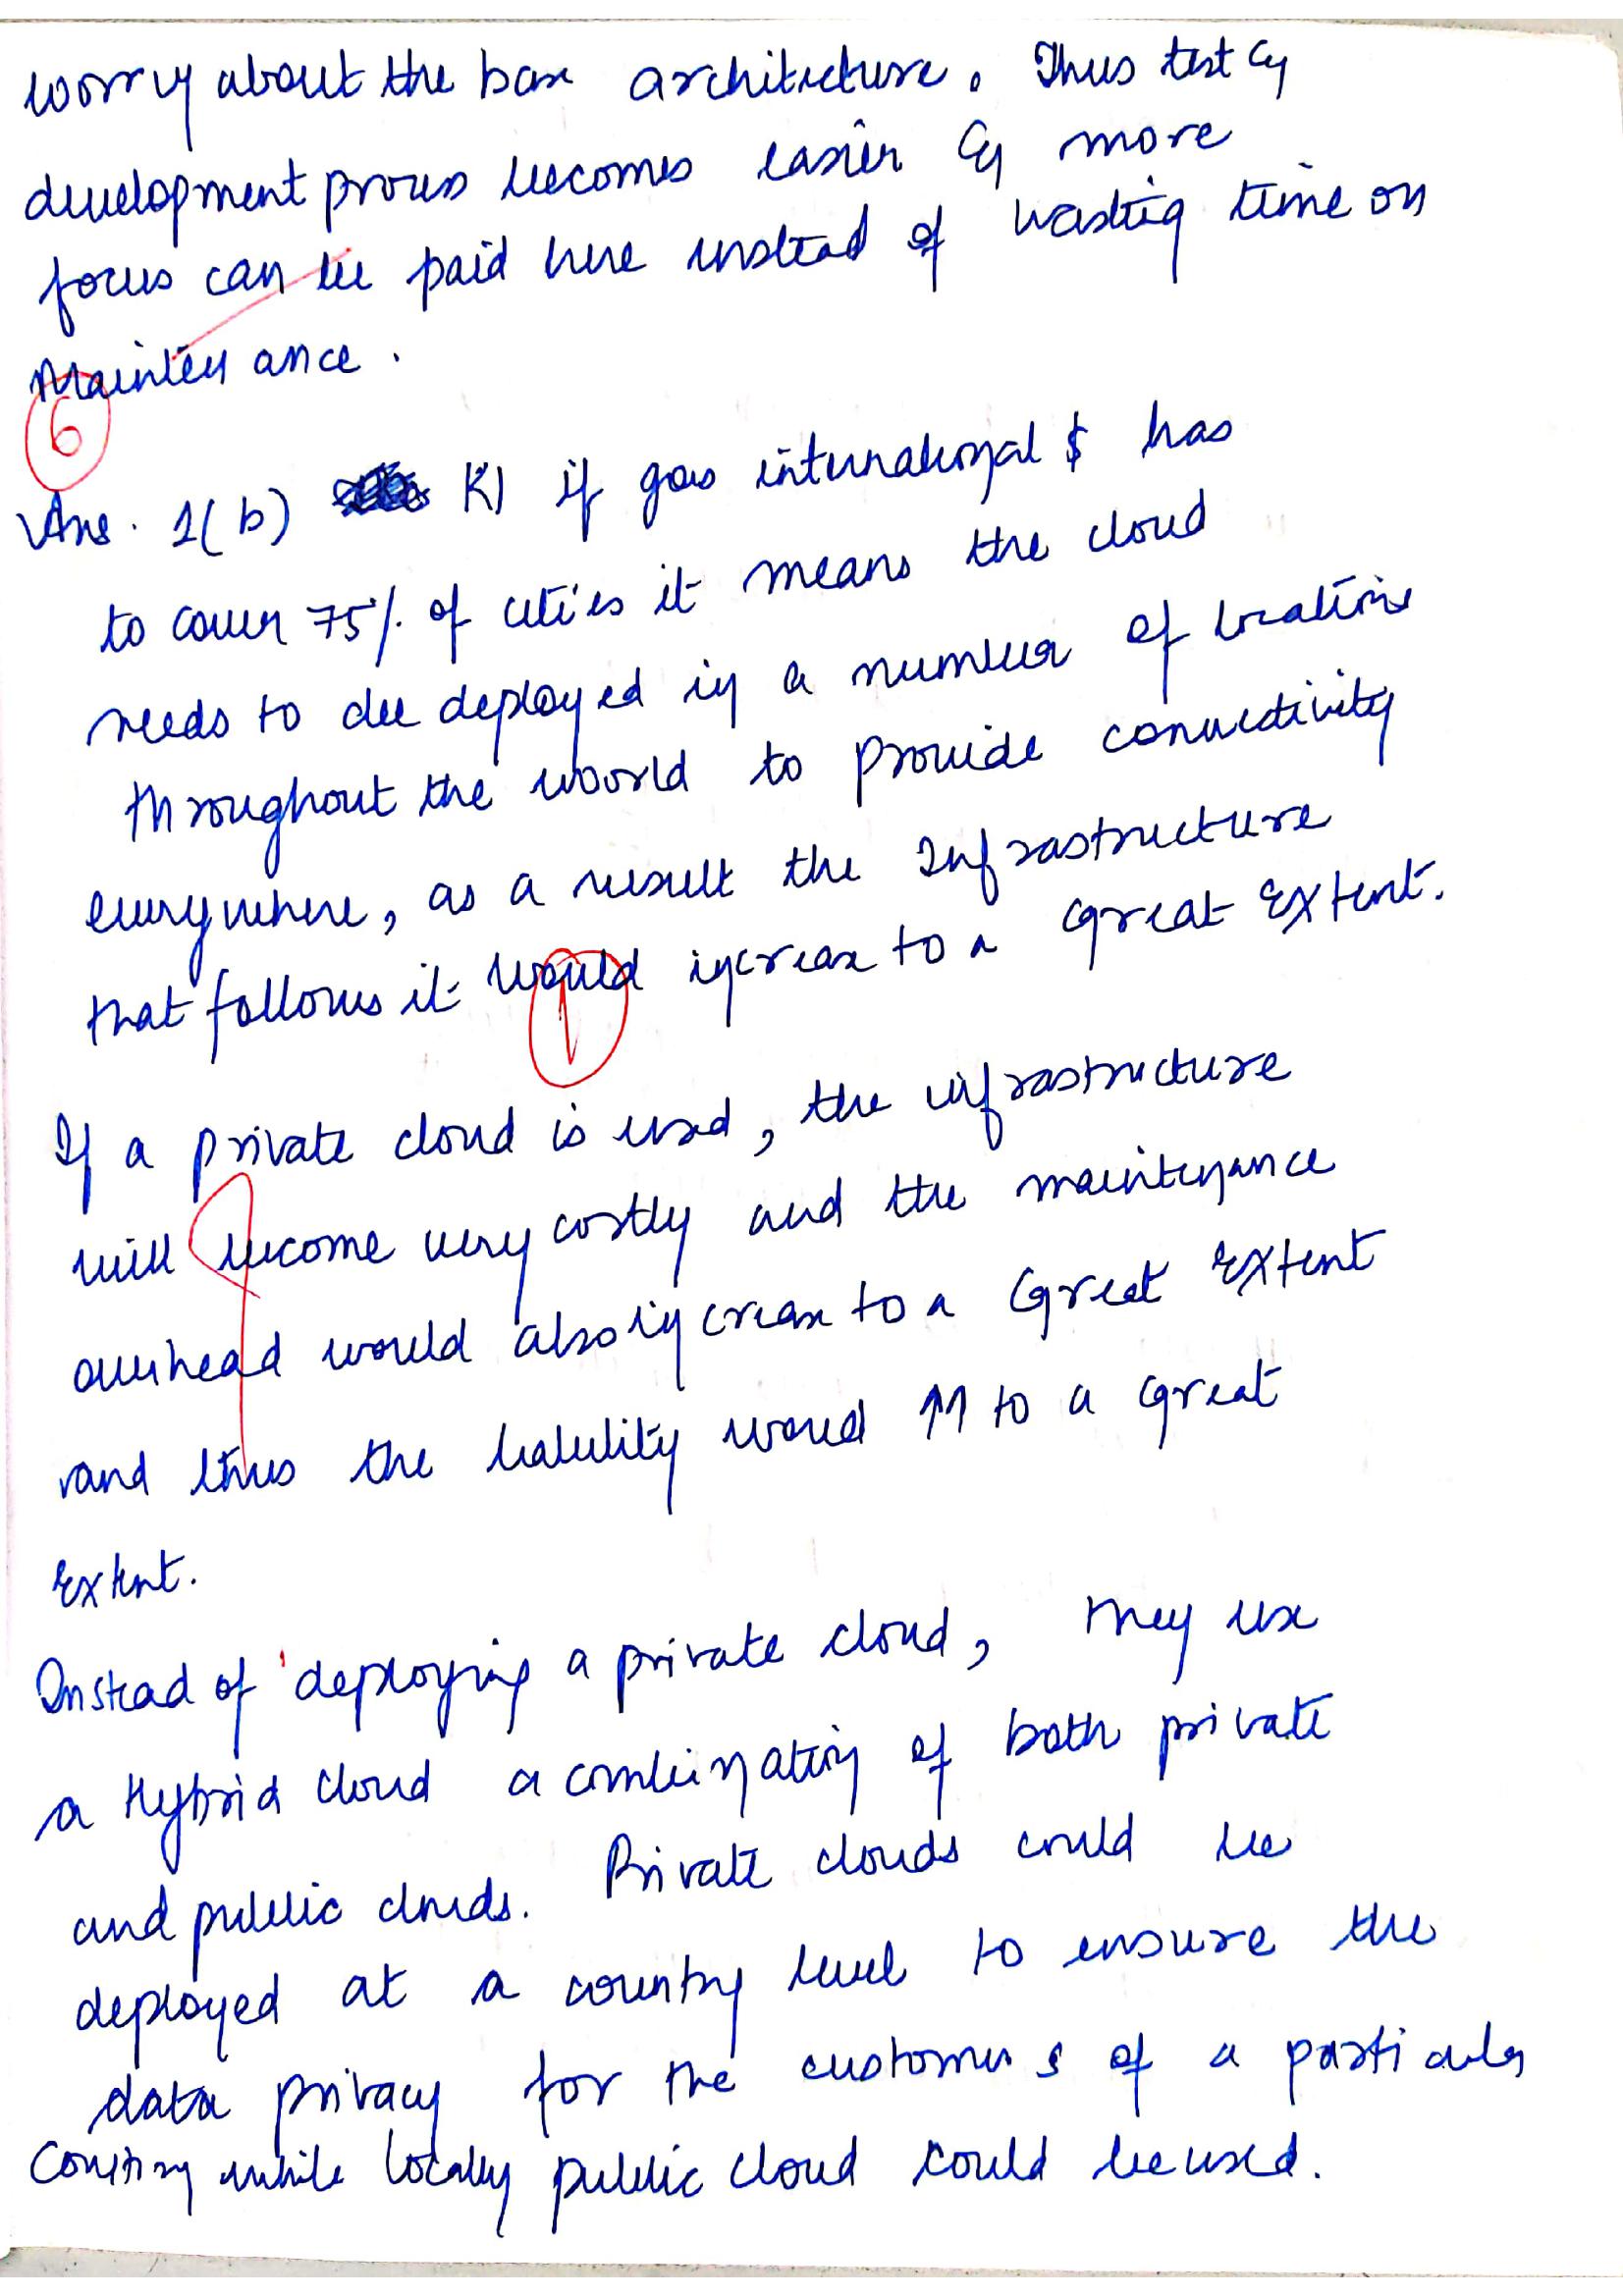 worry about the base architecture. Thus test &
development process becomes easier & more
focus can be paid here instead of wasting time on
Maintenance.
6
Ans. 1(b) K) if goes international & has
to cover 75% of cities it means the cloud
needs to be deployed in a number of locations
throughout the world to provide connectivity
everywhere, as a result the Infrastructure
that follows it would increase to a Great Extent.
1
If a private cloud is used, the infrastructure
will become very costly and the maintenance
overhead would also increase to a Great Extent
and thus the liability would ↑↑ to a Great
Extent.
Instead of deploying a private cloud, they use
a Hybrid cloud a combination of both private
and public clouds. Private clouds could be
deployed at a country level to ensure the
data privacy for the customers of a particular
Country while locally public cloud could be used.